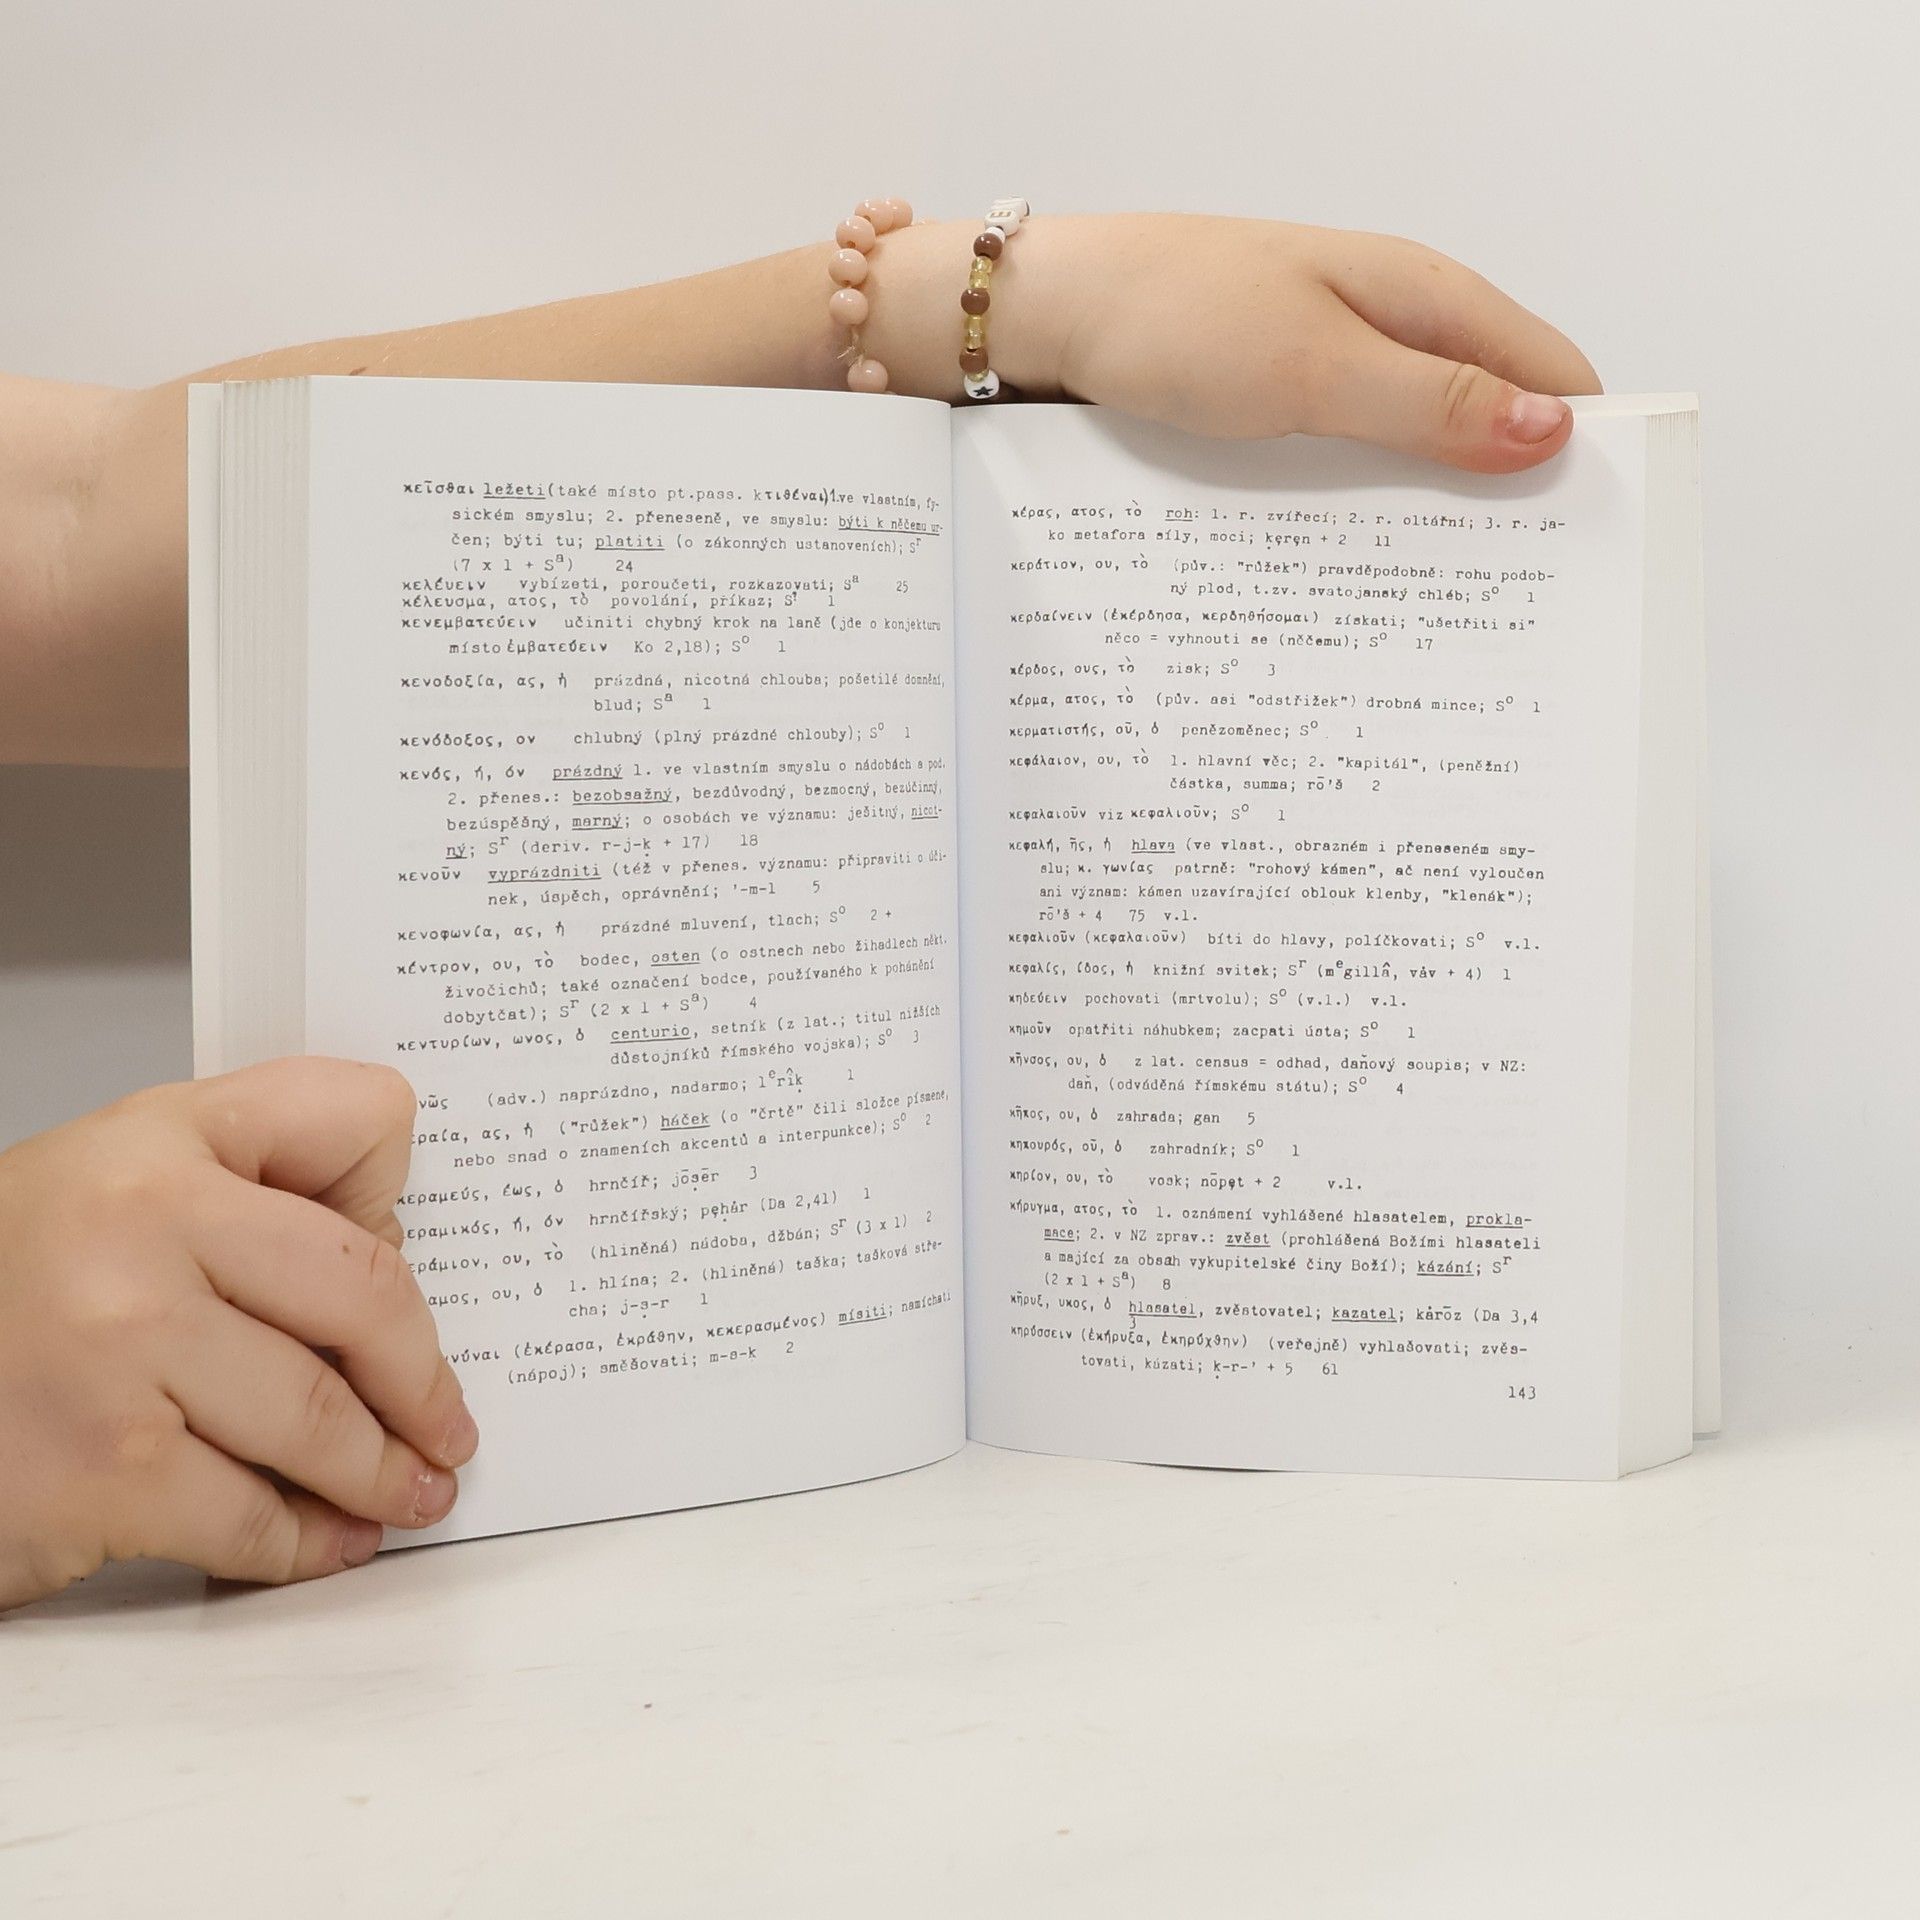 κεῖσθαι ležeti(také místo pt.pass. kτιθέναι)1.ve vlastním, fy-
sickém smyslu; 2. přeneseně, ve smyslu: býti k něčemu ur-
čen; býti tu; platiti (o zákonných ustanoveních); Sʳ
(7 x 1 + Sª) 24
κελέυειν vybízeti, poroučeti, rozkazovati; Sª 25
κέλευσμα, ατος, τὸ povolání, příkaz; 1
κενεμβατεύειν učiniti chybný krok na laně (jde o konjekturu
místo ἐμβατεύειν Ko 2,18); Sº 1
κενοδοξία, ας, ἡ prázdná, nicotná chlouba; pošetilé domnění,
blud; Sª 1
κενόδοξος, ον chlubný (plný prázdné chlouby); Sº 1
κενός, ή, όν prázdný 1. ve vlastním smyslu o nádobách a pod.
2. přenes.: bezobsažný, bezdůvodný, bezmocný, bezúčinný,
bezúspěšný, marný; o osobách ve významu: ješitný, nicot-
ný; Sʳ (deriv. r-j-ḳ + 17) 18
κενοῦν vyprázdniti (též v přenes. významu: připraviti o úči-
nek, úspěch, oprávnění; '-m-l 5
κενοφωνία, ας, ἡ prázdné mluvení, tlach; Sº 2 +
κέντρον, ου, τὸ bodec, osten (o ostnech nebo žihadlech někt.
živočichů; také označení bodce, používaného k pohánění
dobytčat); Sʳ (2 x 1 + Sª) 4
κεντυρίων, ωνος, ὁ centurio, setník (z lat.; titul nižších
důstojníků římského vojska); Sº 3
νῶς (adv.) naprázdno, nadarmo; lᵉrîḳ 1
ραία, ας, ἡ ("růžek") háček (o "črtě" čili složce písmene,
nebo snad o znameních akcentů a interpunkce); Sº 2
κεραμεύς, έως, ὁ hrnčíř; jōṣēr 3
εραμικός, ή, όν hrnčířský; pęḥár (Da 2,41) 1
εράμιον, ου, τὸ (hliněná) nádoba, džbán; Sʳ (3 x 1) 2
αμος, ου, ὁ 1. hlína; 2. (hliněná) taška; tašková stře-
cha; j-ṣ-r 1
νύναι (ἐκέρασα, ἐκράθην, κεκερασμένος) mísiti; namíchati
(nápoj); směšovati; m-s-k 2
κέρας, ατος, τὸ roh: 1. r. zvířecí; 2. r. oltářní; 3. r. ja-
ko metafora síly, moci; ḳęręn + 2 11
κεράτιον, ου, τὸ (pův.: "růžek") pravděpodobně: rohu podob-
ný plod, t.zv. svatojanský chléb; Sº 1
κερδαίνειν (ἐκέρδησα, κερδηθήσομαι) získati; "ušetřiti si"
něco = vyhnouti se (něčemu); Sº 17
κέρδος, ους, τὸ zisk; Sº 3
κέρμα, ατος, τὸ (pův. asi "odstřižek") drobná mince; Sº 1
κερματιστής, οῦ, ὁ penězoměnec; Sº 1
κεφάλαιον, ου, τὸ 1. hlavní věc; 2. "kapitál", (peněžní)
částka, summa; rō'š 2
κεφαλαιοῦν viz κεφαλιοῦν; Sº 1
κεφαλή, ῆς, ἡ hlava (ve vlast., obrazném i přeneseném smy-
slu; κ. γωνίας patrně: "rohový kámen", ač není vyloučen
ani význam: kámen uzavírající oblouk klenby, "klenák");
rō'š + 4 75 v.l.
κεφαλιοῦν (κεφαλαιοῦν) bíti do hlavy, políčkovati; Sº v.l.
κεφαλίς, ίδος, ἡ knižní svitek; Sʳ (mᵉgillâ, váv + 4) 1
κηδεύειν pochovati (mrtvolu); Sº (v.l.) v.l.
κημοῦν opatřiti náhubkem; zacpati ústa; Sº 1
κῆνσος, ου, ὁ z lat. census = odhad, daňový soupis; v NZ:
daň, (odváděná římskému státu); Sº 4
κῆπος, ου, ὁ zahrada; gan 5
κηπουρός, οῦ, ὁ zahradník; Sº 1
κηρίον, ου, τὸ vosk; nōpęt + 2 v.l.
κήρυγμα, ατος, τὸ 1. oznámení vyhlášené hlasatelem, prokla-
mace; 2. v NZ zprav.: zvěst (prohlášená Božími hlasateli
a mající za obsah vykupitelské činy Boží); kázání; Sʳ
(2 x 1 + Sª) 8
κῆρυξ, υκος, ὁ hlasatel, zvěstovatel; kazatel; kárōz (Da 3,4
3
κηρύσσειν (ἐκήρυξα, ἐκηρύχθην) (veřejně) vyhlašovati; zvěs-
tovati, kázati; ḳ-r-' + 5 61
143